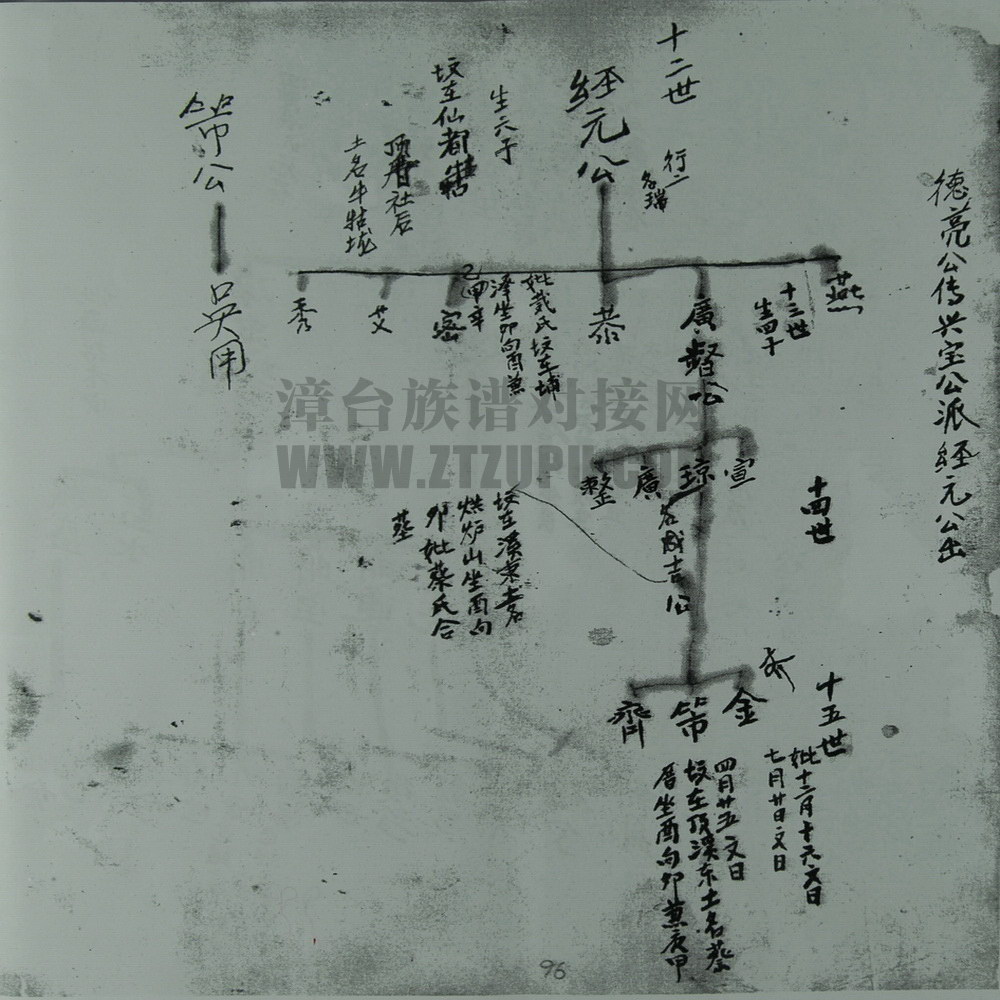 德亮公传兴宝公派經元公出
十二世
經元公
行二
名瑞
生六子
坟在仙都
社后
土名牛牯垅
燕
十三世
廣
公
恭
密
艾
秀
妣戴氏坟在埔
坐卯向酉兼
漳台族谱对接网
WWW.ZTZUPU.COM
十四世
宣
琼
廣
整
名成吉公
坟在溪東
烘炉山坐酉向
卯妣蔡氏合
葬
十五世
金
第
齊
妣十二月十六文日
七月廿日文日
四月廿五文日
坟在顶溪东土名蔡
厝坐酉向卯兼庚甲
第公
吳
96